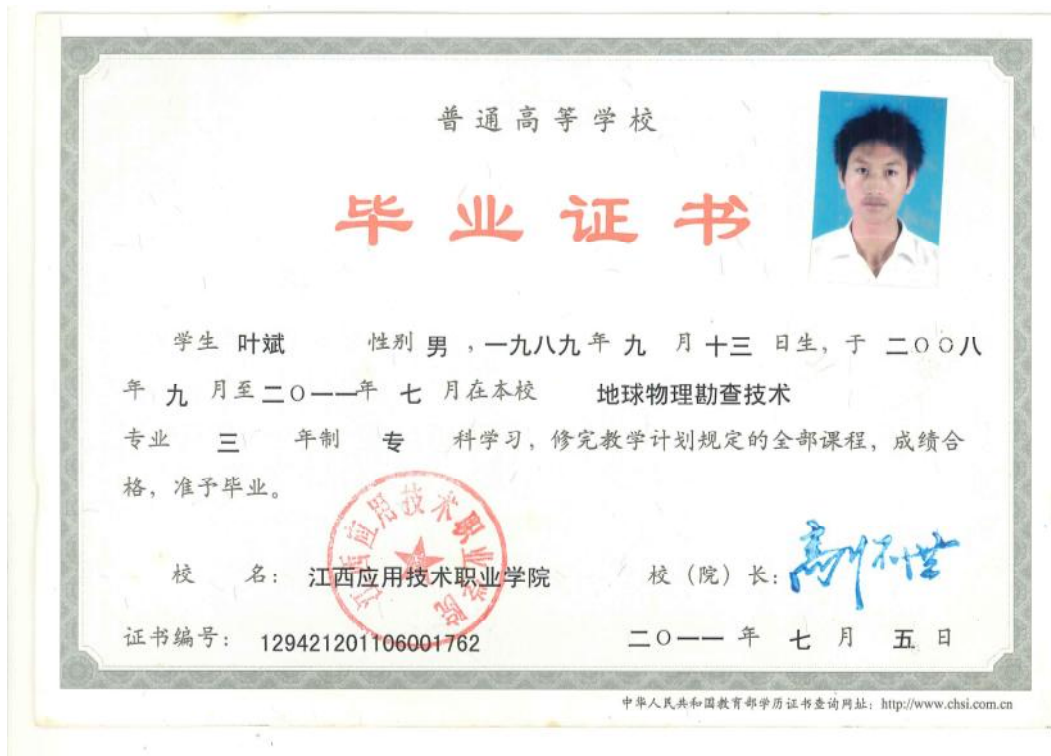 普通高等学校
毕业证书
学生 叶斌 性别 男 ，一九八九年 九 月 十三 日生，于 二〇〇八
年 九 月至二〇一一年 七 月在本校 地球物理勘查技术
专业 三 年制 专 科学习，修完教学计划规定的全部课程，成绩合
格，准予毕业。
江西应用技术职业学院
校 名： 江西应用技术职业学院 校（院）长：
证书编号： 129421201106001762 二〇一一 年 七 月 五 日
中华人民共和国教育部学历证书查询网址：http://www.chsi.com.cn